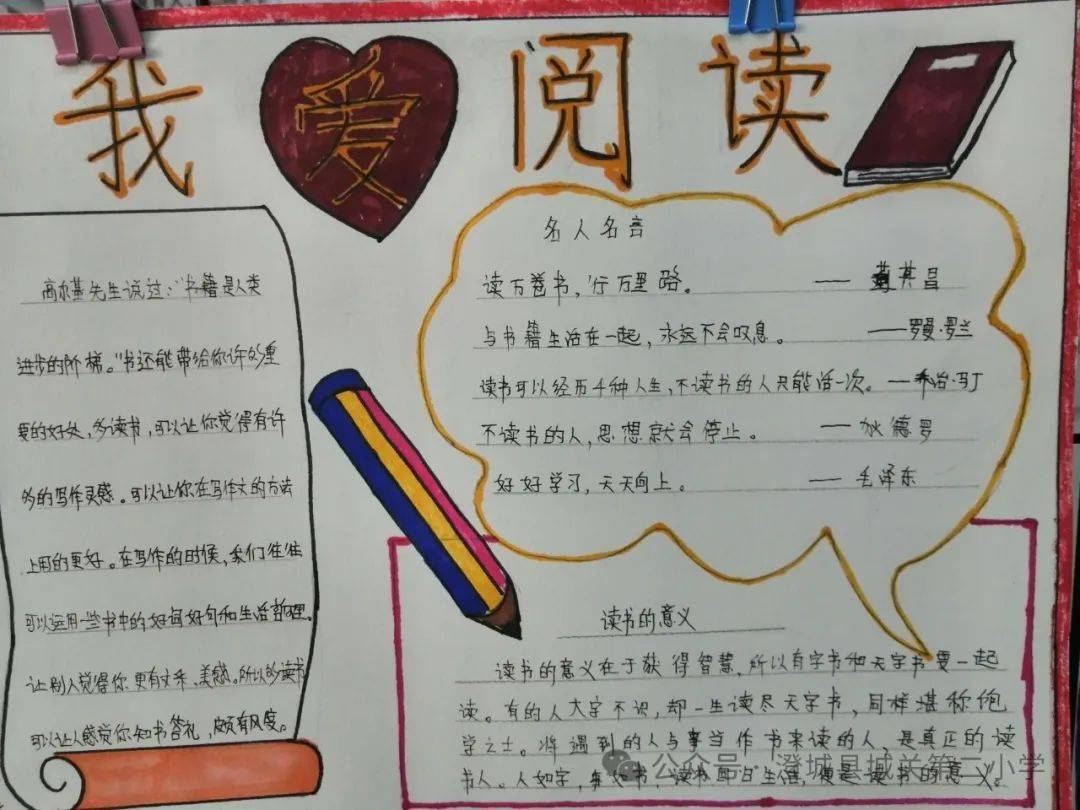 我爱阅读
高尔基先生说过:“书籍是人类
进步的阶梯。”书还能带给你许多重
要的好处,多读书,可以让你觉得有许
多的写作灵感。可以让你在写作文的方法
上用的更好。在写作的时候,我们往往
可以运用一些书中的好词好句和生活哲理。
让别人觉得你更有文采、美感。所以多读书
可以让人感觉你知书答礼,颇有风度。
名人名言
读万卷书,行万里路。 —— 董其昌
与书籍生活在一起,永远不会叹息。 ——罗曼·罗兰
读书可以经历千种人生,不读书的人只能活一次。—乔治·马丁
不读书的人,思想就会停止。 — 狄德罗
好好学习,天天向上。 —— 毛泽东
读书的意义
读书的意义在于获得智慧,所以有字书和天字书要一起
读。有的人大字不识,却一生读尽天字书,同样堪称饱
学之士。将遇到的人与事当作书来读的人,是真正的读
书人。人如字,事如书,读书即日生活,便是读书的意义。
公众号·澄城县城关第二小学